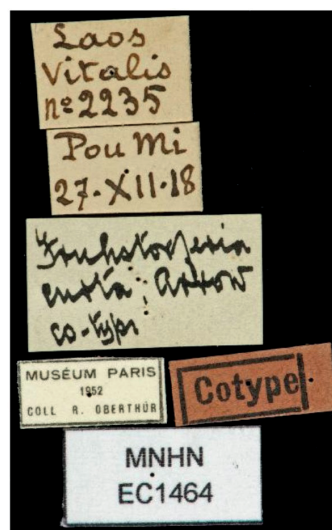 Laos
Vitalis
nº 2235
Pou Mi
27.XII.18
Fruhstorferia
Arrow
co-type
MUSÉUM PARIS
1952
COLL R. OBERTHÜR
Cotype
MNHN
EC1464